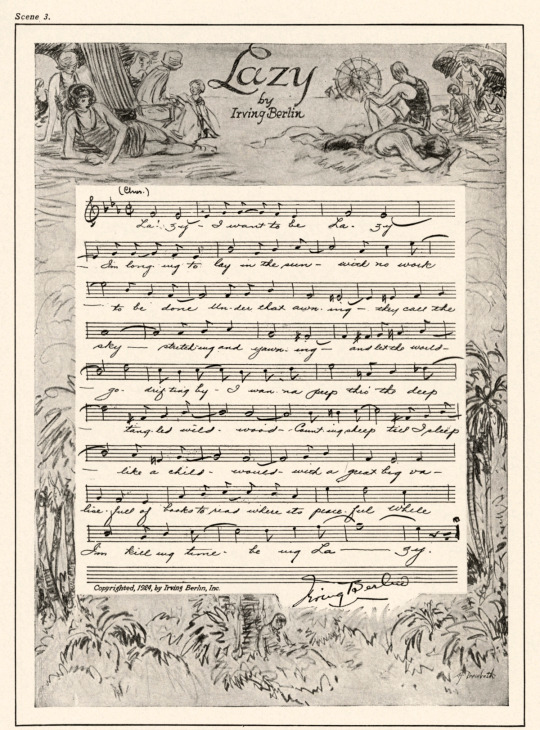 Scene 3.
Lazy
by
Irving Berlin
(Chorus.)
La - zy - I want to be La - zy
I'm long - ing to lay in the sun - with no work
to be done Un - der that awn - ing - they call the
sky - stretching and yawn - ing - and let the world -
go - drifting by - I wan - na peep thro' the deep
tang - led wild - wood - Count - ing sheep till I sleep
like a child - would - with a great big va -
lise - full of books to read where its peace - ful while
I'm kill ing time - be - ing La - zy.
Copyrighted, 1924, by Irving Berlin, Inc.
Irving Berlin